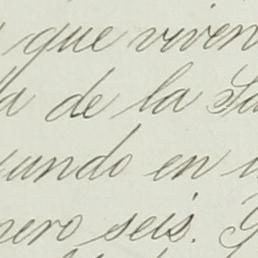 que viven
a de la Sa
uando en
mero seis.